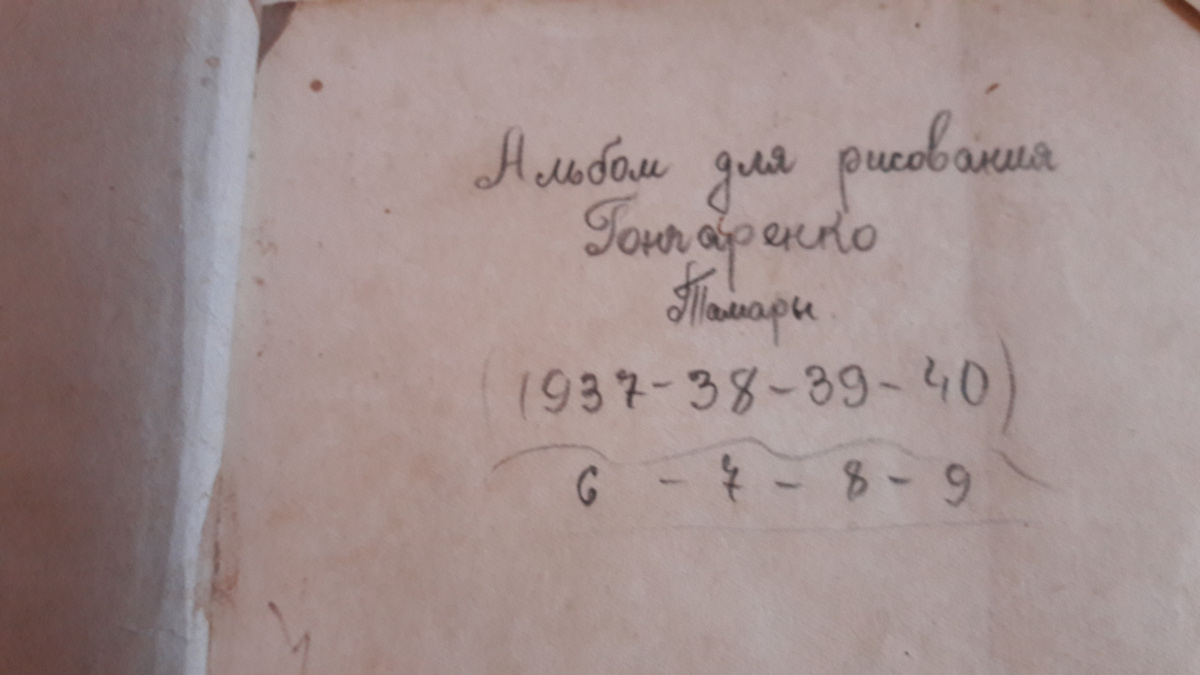 Альбом для рисования
Гончаренко
Тамары
(1937-38-39-40)
6 - 7 - 8 - 9